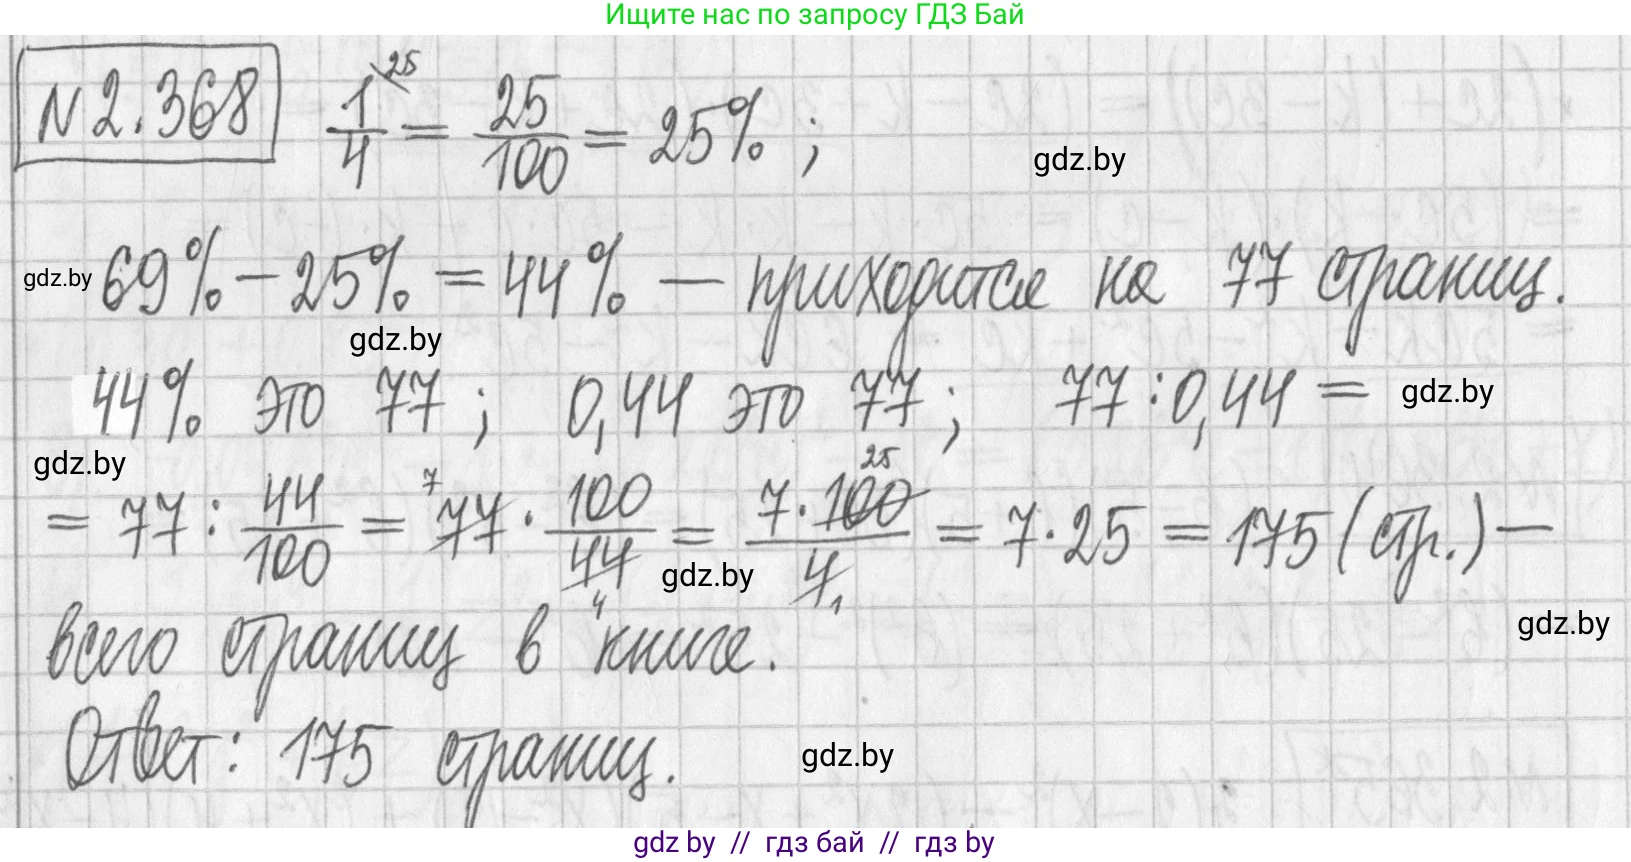 Ищите нас по запросу ГДЗ Бай
N 2.368 1/4 ²⁵ = 25/100 = 25% ;
gdz.by
gdz.by 69% − 25% = 44% — приходится на 77 страниц.
gdz.by
44% это 77 ; 0,44 это 77 ; 77 : 0,44 = gdz.by
gdz.by
= 77 : 44/100 = ⁷77 · 100/44 ₄ = 7 · 100 ²⁵/4 ₁ = 7 · 25 = 175 (стр.) —
gdz.by
gdz.by
всего страниц в книге.
Ответ: 175 страниц. gdz.by
gdz by // гдз бай // гдз by